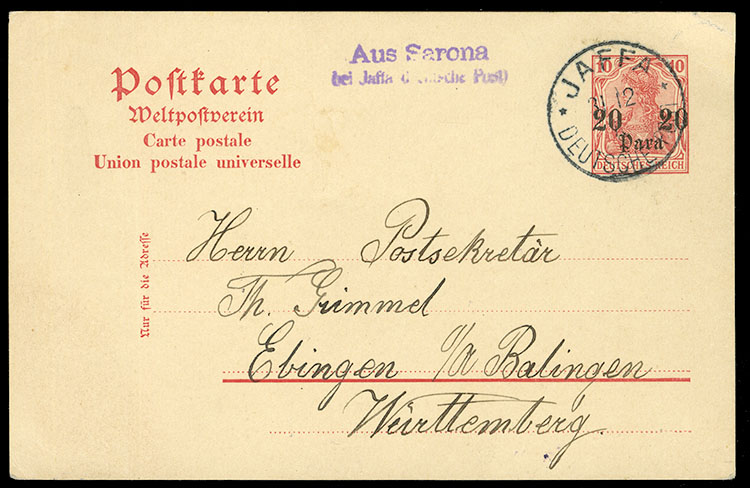 Aus Sarona
bei Jaffa Post)
Postkarte
Weltpostverein
Carte postale
Union postale universelle
JAFFA
12
DEUTSCHE
10 10
20 20
Para
DEUTSCHES REICH
Nur für die Adresse
Herrn Postsekretär
Th. Grimmel
Ebingen O/A Balingen
Württemberg.